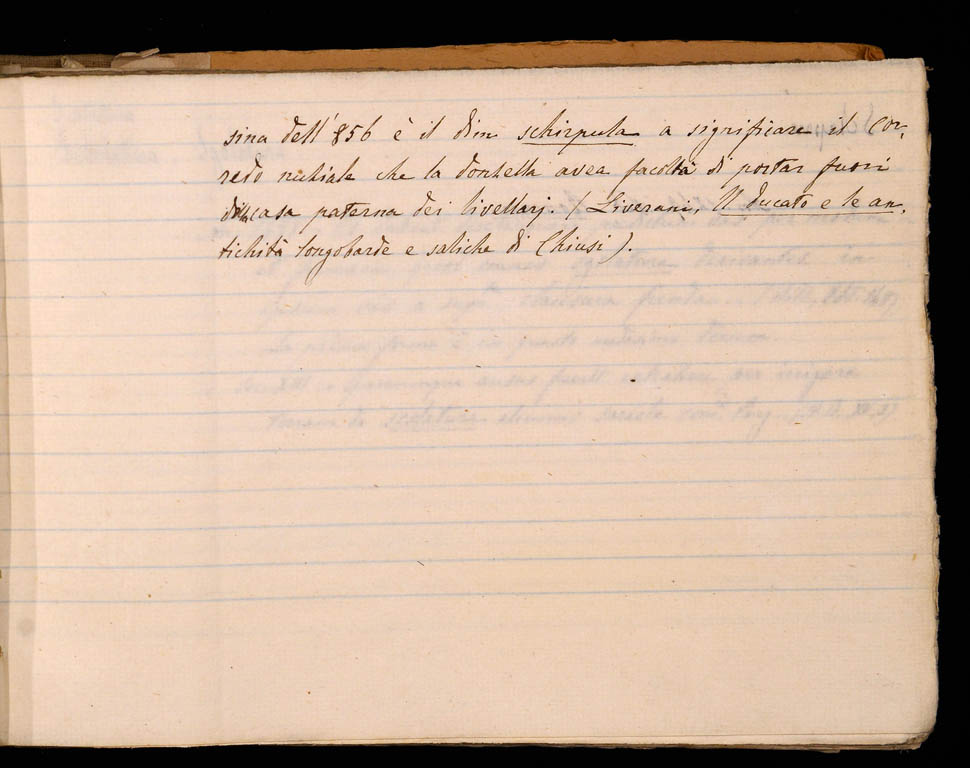 sina dell' 856 è il dim schirpula a significare il cor,
redo nuziale che la donzella avea facoltà di portar fuori
della casa paterna dei livellarj. (Liverani, Il Ducato e le an,
tichità longobarde e saliche di Chiusi).